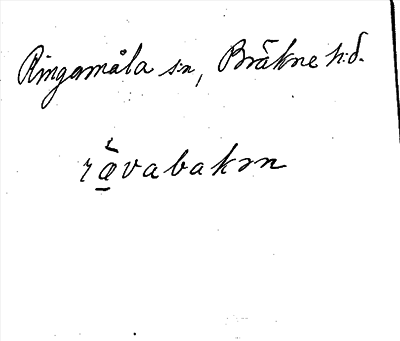 Ringamåla sn, Bräkne h:d.
rävabakrn